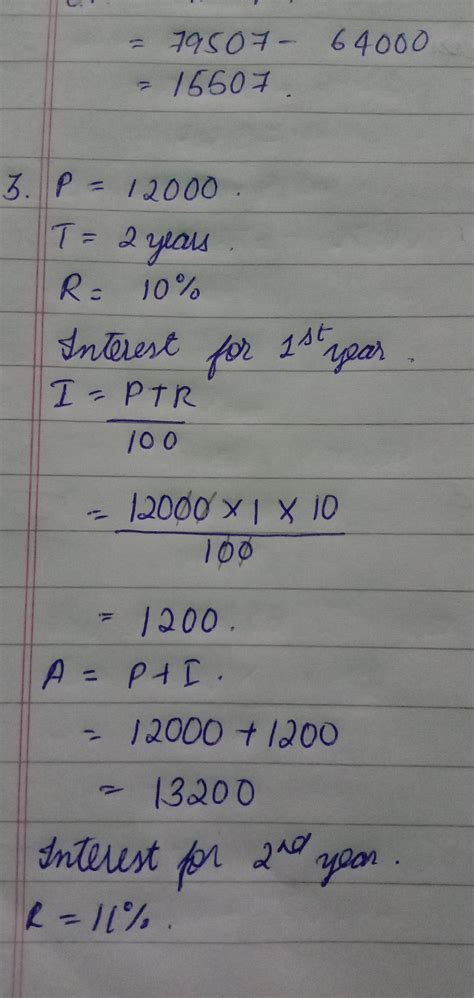 = 79507 - 64000
= 15507.
3. P = 12000.
T = 2 years.
R = 10%
Interest for 1st year.
I = PTR
100
= 12000 × 1 × 10
100
= 1200.
A = P + I.
= 12000 + 1200
= 13200
Interest for 2nd year.
R = 11%.